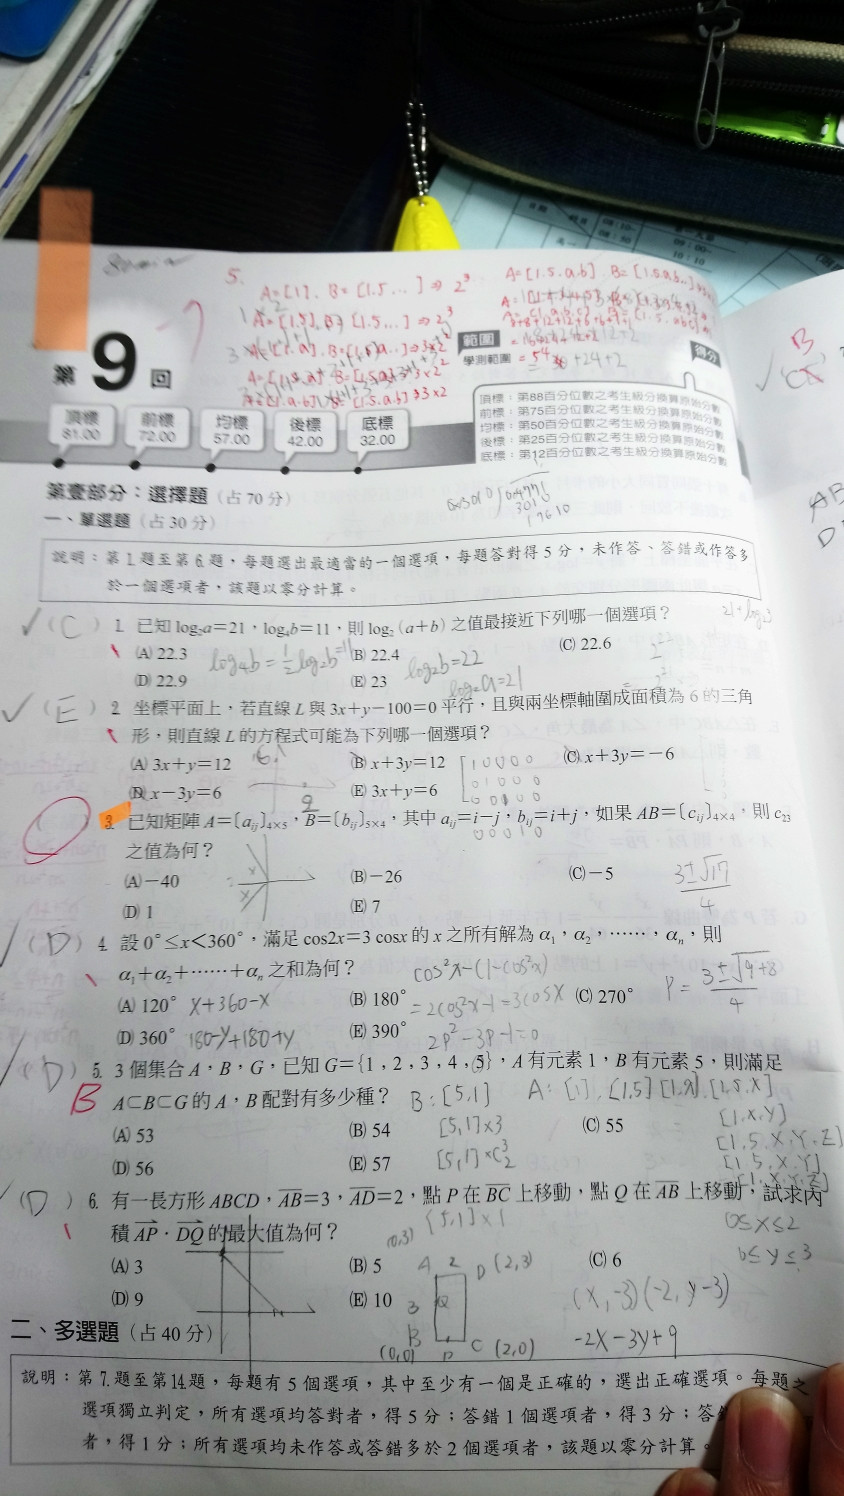 5.
A=[1]. B=[1.5...]⇒2³
A=[1.5.a.b]
第9回
範圍
學測範圍
得分
頂標 81.00
前標 72.00
均標 57.00
後標 42.00
底標 32.00
頂標:第88百分位數之考生級分換算原始分數
前標:第75百分位數之考生級分換算原始分數
均標:第50百分位數之考生級分換算原始分數
後標:第25百分位數之考生級分換算原始分數
底標:第12百分位數之考生級分換算原始分數
第壹部分:選擇題(占70分)
一、單選題(占30分)
說明:第1.題至第6.題,每題選出最適當的一個選項,每題答對得5分,未作答、答錯或作答多
於一個選項者,該題以零分計算。
(C) 1. 已知log₂a=21,log₄b=11,則log₂(a+b)之值最接近下列哪一個選項?
(A) 22.3 (B) 22.4 (C) 22.6
(D) 22.9 (E) 23
log₄b=½log₂b=11
log₂b=22
log₂a=21
(E) 2. 坐標平面上,若直線L與3x+y-100=0平行,且與兩坐標軸圍成面積為6的三角
形,則直線L的方程式可能為下列哪一個選項?
(A) 3x+y=12 (B) x+3y=12 (C) x+3y=-6
(D) x-3y=6 (E) 3x+y=6
3. 已知矩陣A=[aᵢⱼ]₄ₓ₅,B=[bᵢⱼ]₅ₓ₄,其中aᵢⱼ=i-j,bᵢⱼ=i+j,如果AB=[cᵢⱼ]₄ₓ₄,則c₂₃
之值為何?
(A) -40 (B) -26 (C) -5
(D) 1 (E) 7
3±√17
4
(D) 4. 設0°≤x<360°,滿足cos2x=3 cosx的x之所有解為α₁,α₂,……,αₙ,則
α₁+α₂+……+αₙ之和為何?
cos²x-(1-cos²x)
(A) 120° (B) 180° (C) 270°
x+360-x
=2cos²x-1=3cosx
P=3±√9+8
4
(D) 360° (E) 390°
180-y+180+y
2P²-3P-1=0
(D) 5. 3個集合A,B,G,已知G={1,2,3,4,5},A有元素1,B有元素5,則滿足
B
A⊂B⊂G的A,B配對有多少種?
B:[5,1]
(A) 53 (B) 54 (C) 55
(D) 56 (E) 57
[5,1]×3
[1.x.y]
(D) 6. 有一長方形ABCD,AB=3,AD=2,點P在BC上移動,點Q在AB上移動,試求內
積AP·DQ的最大值為何?
[5,1]×1
0≤x≤2
0≤y≤3
(A) 3 (B) 5 (C) 6
(D) 9 (E) 10
(0,3)
A 2 D (2,3)
3 Q
B C (2,0)
(0,0) P
(x,-3)(-2,y-3)
-2x-3y+9
二、多選題(占40分)
說明:第7.題至第14.題,每題有5個選項,其中至少有一個是正確的,選出正確選項。每題之
選項獨立判定,所有選項均答對者,得5分;答錯1個選項者,得3分;答
者,得1分;所有選項均未作答或答錯多於2個選項者,該題以零分計算。